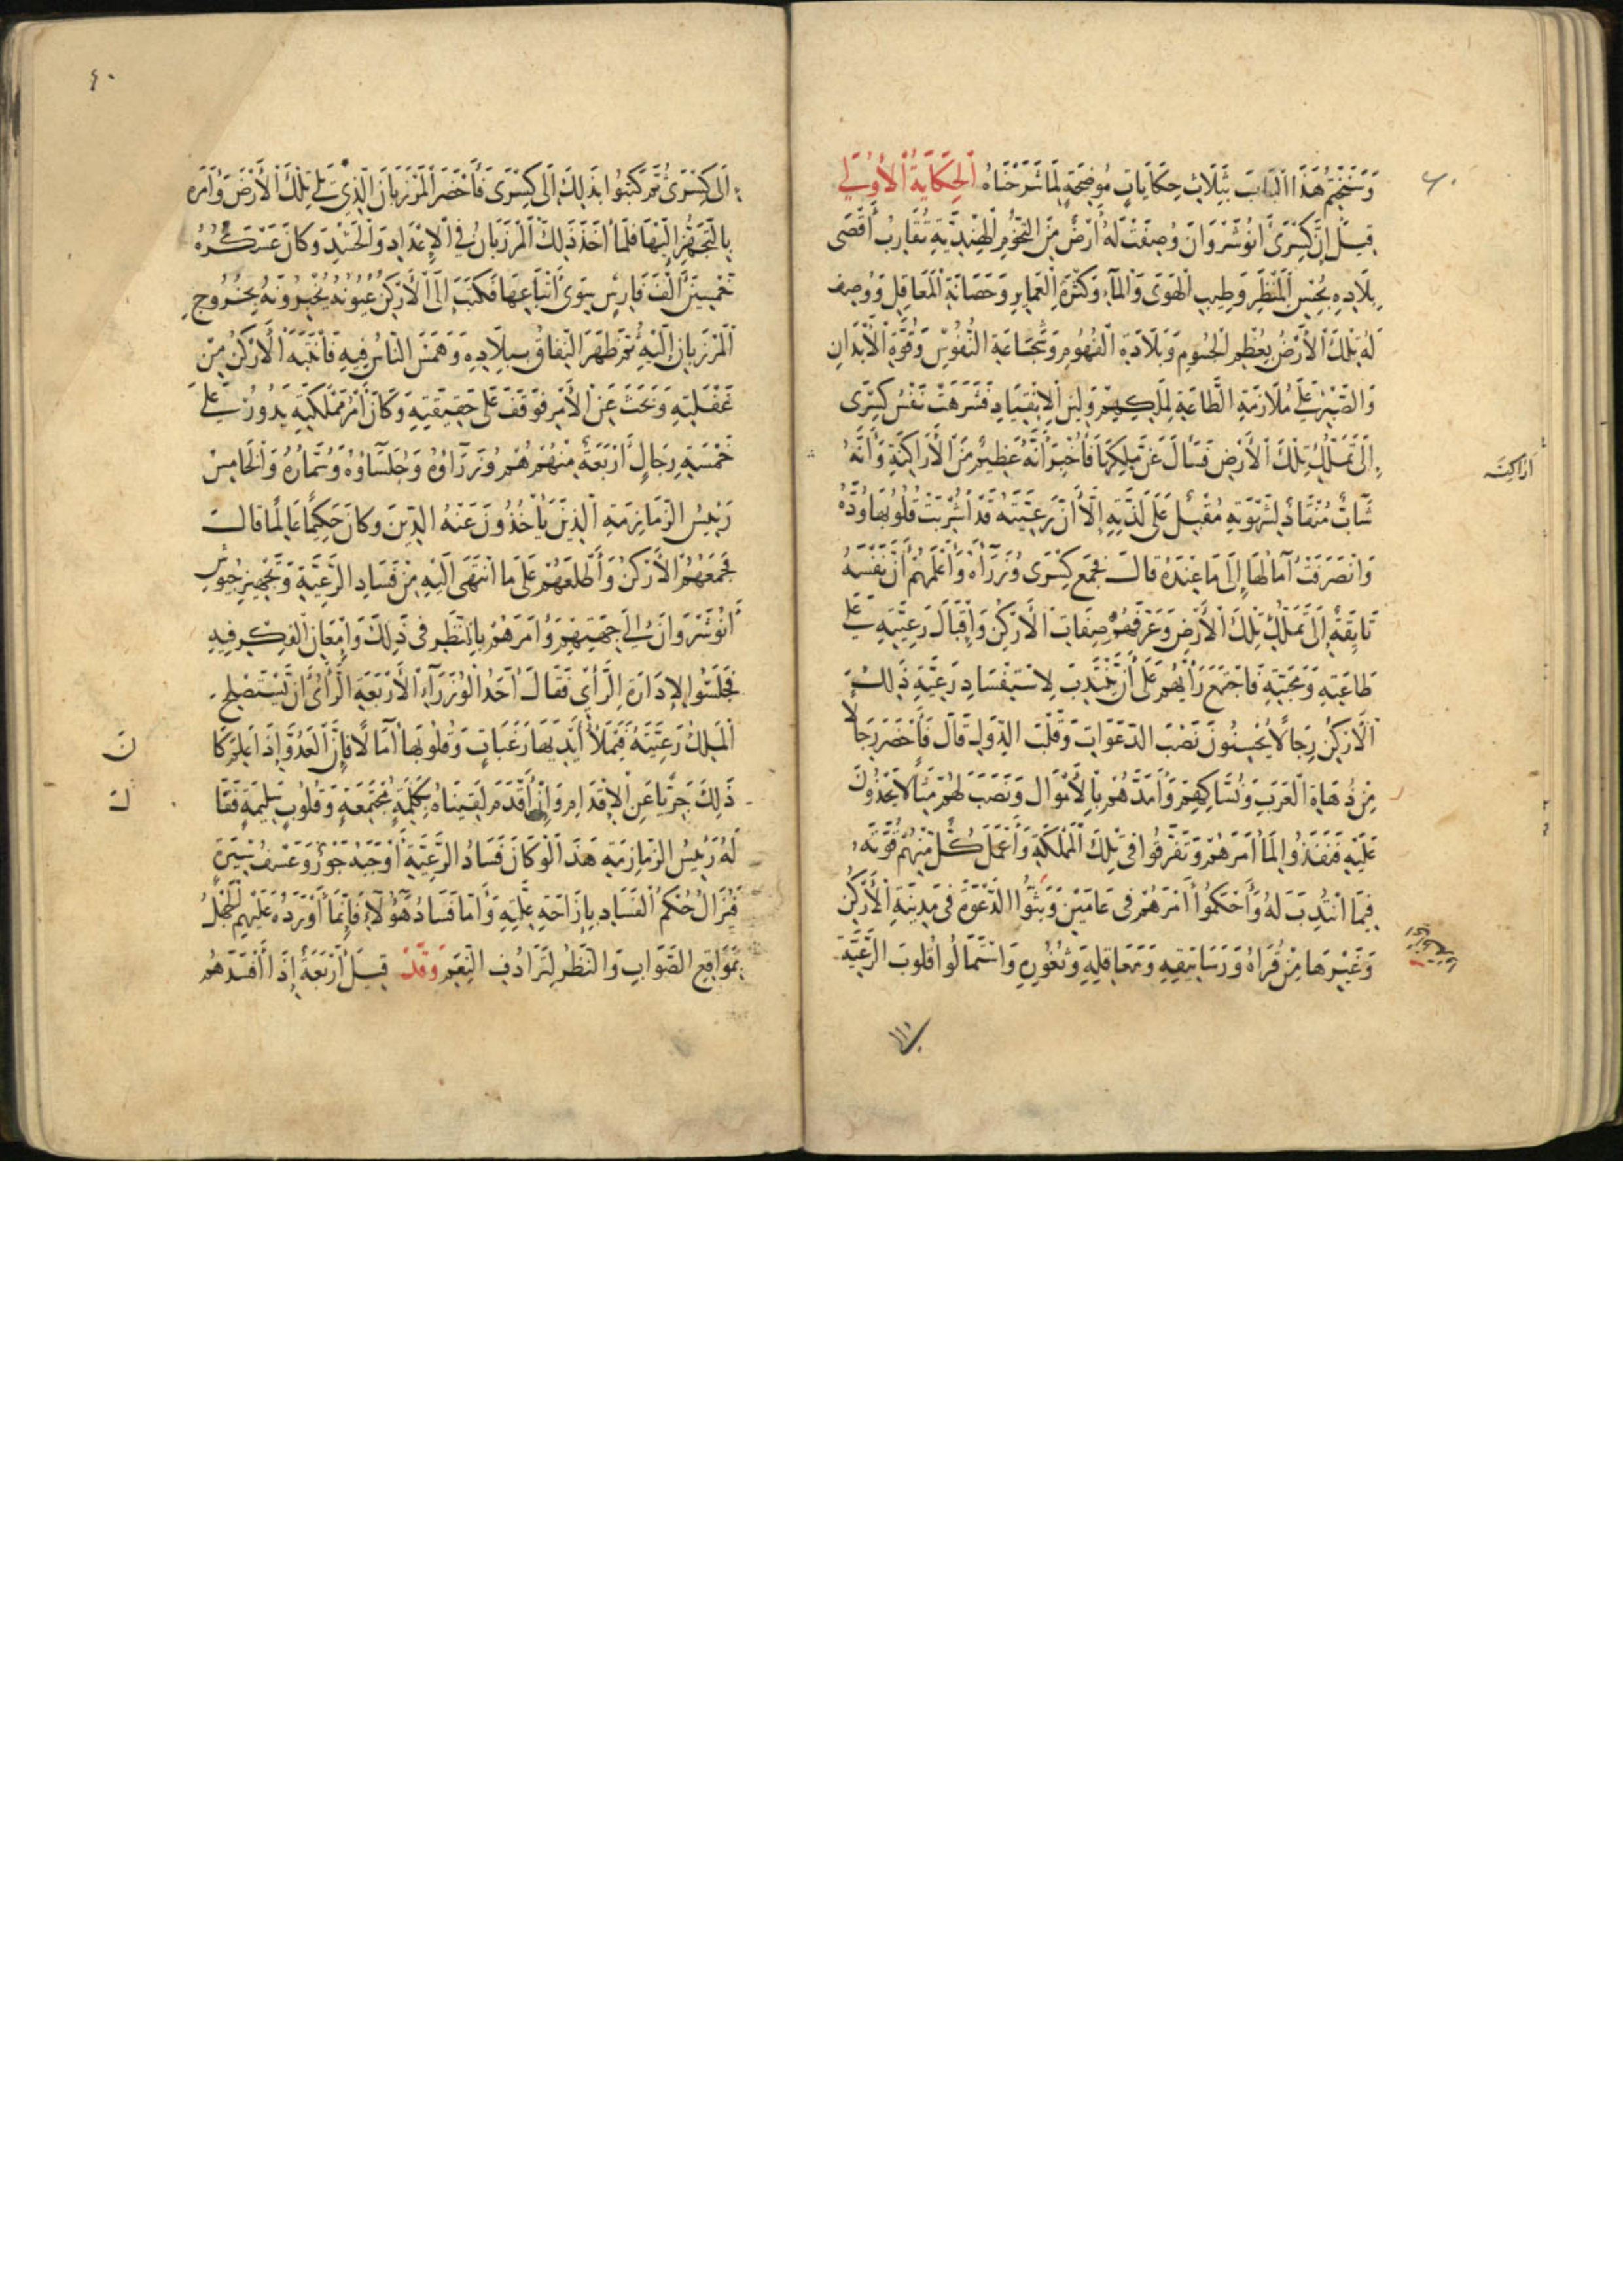 وَنَخْتِمُ هَذَا الْبَابَ بِثَلَاثِ حِكَايَاتٍ مُوضِحَةٍ لِمَا شَرَحْنَاهُ الْحِكَايَةُ الْأُولَى
قِيلَ إِنَّ كِسْرَى أَنُوشَرْوَانَ وُصِفَتْ لَهُ أَرْضٌ مِنَ التُّخُومِ الْهِنْدِيَّةِ تُقَارِبُ أَقْصَى
بِلَادِهِ بِحُسْنِ الْمَنْظَرِ وَطِيبِ الْهَوَى وَالْمَاءِ وَكَثْرَةِ الْعَمَايِرِ وَحَصَانَةِ الْمَعَاقِلِ وَوُصِفَ
لَهُ تِلْكَ الْأَرْضُ بِعُظْمِ الْجُسُومِ وَبَلَادَةِ الْفُهُومِ وَشَجَاعَةِ النُّفُوسِ وَقُوَّةِ الْأَبْدَانِ
وَالصَّبْرِ عَلَى مُلَازَمَةِ الطَّاعَةِ لِمَلِكِهِمْ وَلِينِ الِانْقِيَادِ فَشَرِهَتْ نَفْسُ كِسْرَى
إِلَى تَمَلُّكِ تِلْكَ الْأَرْضِ فَسَأَلَ عَنْ مَلِكِهَا فَأُخْبِرَ أَنَّهُ عَظِيمٌ مِنَ الْأَرَاكِنَةِ وَأَنَّهُ
أَرَاكِنَة
شَابٌّ مُنْقَادٌ لِشَهْوَتِهِ مُقْبِلٌ عَلَى لَذَّتِهِ إِلَّا أَنَّ رَعِيَّتَهُ قَدْ أُشْرِبَتْ قُلُوبُهَا وُدَّهُ
وَانْصَرَفَتْ آمَالُهَا إِلَى مَا عِنْدَهُ قَالَ فَجَمَعَ كِسْرَى وُزَرَاءَهُ وَأَعْلَمَهُمْ أَنَّ نَفْسَهُ
تَايِقَةٌ إِلَى تَمَلُّكِ تِلْكَ الْأَرْضِ وَعَرَّفَهُمْ صِفَاتِ الْأَرْكُنِ وَإِقْبَالَ رَعِيَّتِهِ عَلَى
طَاعَتِهِ وَمَحَبَّتِهِ فَاجْتَمَعَ رَأْيُهُمْ عَلَى أَنْ يَنْتَدِبَ لِاسْتِفْسَادِ رَعِيَّةِ ذَلِكَ
الْأَرْكُنِ رِجَالًا يُحْسِنُونَ نَصْبَ الدَّعَوَاتِ وَقَلْبَ الدُّوَلِ قَالَ فَأَحْضَرَ رِجَالًا
مِنْ دُهَاةِ الْعَرَبِ وَنُسَّاكِهِمْ وَأَمَدَّهُمْ بِالْأَمْوَالِ وَنَصَبَ لَهُمْ مِثَالًا يَحْذُونَ
عَلَيْهِ فَنَفَذُوا لِمَا أَمَرَهُمْ وَتَفَرَّقُوا فِي تِلْكَ الْمَمْلَكَةِ وَأَعْمَلَ كُلٌّ مِنْهُمْ قُوَّتَهُ
فِيمَا انْتُدِبَ لَهُ وَأَحْكَمُوا أَمْرَهُمْ فِي عَامَيْنِ وَبَثُّوا الدَّعْوَةَ فِي مَدِينَةِ الْأَرْكُنِ
وَغَيْرِهَا مِنْ قُرَاهُ وَرَسَاتِيقِهِ وَمَعَاقِلِهِ وَثُغُورِهِ وَاسْتَمَالُوا قُلُوبَ الرَّعِيَّةِ
٤٠
إِلَى كِسْرَى ثُمَّ كَتَبُوا بِذَلِكَ إِلَى كِسْرَى فَأَحْضَرَ الْمَرْزَبَانَ الَّذِي يَلِي تِلْكَ الْأَرْضَ وَأَمَرَهُ
بِالتَّجَهُّزِ إِلَيْهَا فَلَمَّا أَخَذَ ذَلِكَ الْمَرْزَبَانُ فِي الْإِعْدَادِ وَالْحَشْدِ وَكَانَ عَسْكَرُهُ
خَمْسِينَ أَلْفَ فَارِسٍ سِوَى أَتْبَاعِهَا فَكَتَبَ إِلَى الْأَرْكُنِ عُيُونُهُ يُخْبِرُونَهُ بِخُرُوجِ
الْمَرْزَبَانِ إِلَيْهِ ثُمَّ ظَهَرَ النِّفَاقُ بِبِلَادِهِ وَهَمَسَ النَّاسُ فِيهِ فَانْتَبَهَ الْأَرْكُنُ مِنْ
غَفْلَتِهِ وَبَحَثَ عَنِ الْأَمْرِ فَوَقَفَ عَلَى حَقِيقَتِهِ وَكَانَ أَمْرُ مَمْلَكَتِهِ يَدُورُ عَلَى
خَمْسَةِ رِجَالٍ أَرْبَعَةٌ مِنْهُمْ هُمْ وُزَرَاؤُهُ وَجُلَسَاؤُهُ وَسُمَّارُهُ وَالْخَامِسُ
رَئِيسُ الزَّمَازِمَةِ الَّذِينَ يَأْخُذُونَ عَنْهُ الدِّينَ وَكَانَ حَكِيمًا عَالِمًا قَالَ
فَجَمَعَهُمُ الْأَرْكُنُ وَأَطْلَعَهُمْ عَلَى مَا انْتَهَى إِلَيْهِ مِنْ فَسَادِ الرَّعِيَّةِ وَتَجْهِيزِ جُيُوشِ
أَنُوشَرْوَانَ إِلَى جِهَتِهِمْ وَأَمَرَهُمْ بِالنَّظَرِ فِي ذَلِكَ وَإِمْعَانِ الْفِكْرِ فِيهِ
فَجَلَسُوا لِإِدَارَةِ الرَّأْيِ فَقَالَ أَحَدُ الْوُزَرَاءِ الْأَرْبَعَةِ الرَّأْيُ أَنْ يَسْتَصْلِحَ
الْمَلِكُ رَعِيَّتَهُ فَيَمْلَأَ أَيْدِيَهَا رَغَبَاتٍ وَقُلُوبَهَا آمَالًا فَإِنَّ الْعَدُوَّ إِذَا بَلَغَهُ كَا
نَ
ذَلِكَ جَرِيًّا عَنِ الْإِقْدَامِ وَإِنْ أَقْدَمَ لَقِينَاهُ بِكَلِمَةٍ مُجْتَمِعَةٍ وَقُلُوبٍ سَلِيمَةٍ فَقَا
لَ
لَهُ رَئِيسُ الزَّمَازِمَةِ هَذَا لَوْ كَانَ فَسَادُ الرَّعِيَّةِ أَوْجَبَهُ جَوْرٌ وَعَسْفُ سِيرَةٍ
فَيُزَالُ حُكْمُ الْفَسَادِ بِإِزَاحَةِ عِلَّتِهِ وَأَمَّا فَسَادُ هَؤُلَاءِ فَإِنَّمَا أَوْرَدَهُ عَلَيْهِمُ الْجَهْلُ
بِمَوَاقِعِ الصَّوَابِ وَالنَّظَرُ لِتَرَادُفِ النِّعَمِ وَقَدْ قِيلَ أَرْبَعَةٌ إِذَا أَفْسَدَهُمُ